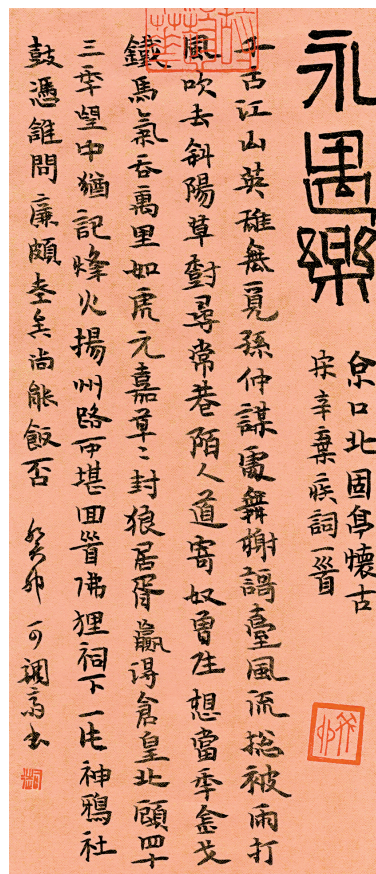 永遇樂
京口北固亭懷古
宋辛棄疾詞一首
千古江山英雄無覓孫仲謀處舞榭謌臺風流總被雨打
風吹去斜陽草對尋常巷陌人道寄奴曾住想當年金戈
鐵馬氣吞萬里如虎元嘉草〻封狼居胥贏得倉皇北顧四十
三年望中猶記烽火揚州路可堪回首佛狸祠下一片神鴉社
鼓憑誰問廉頗老矣尚能飯否 癸卯 可調齋書
癸卯